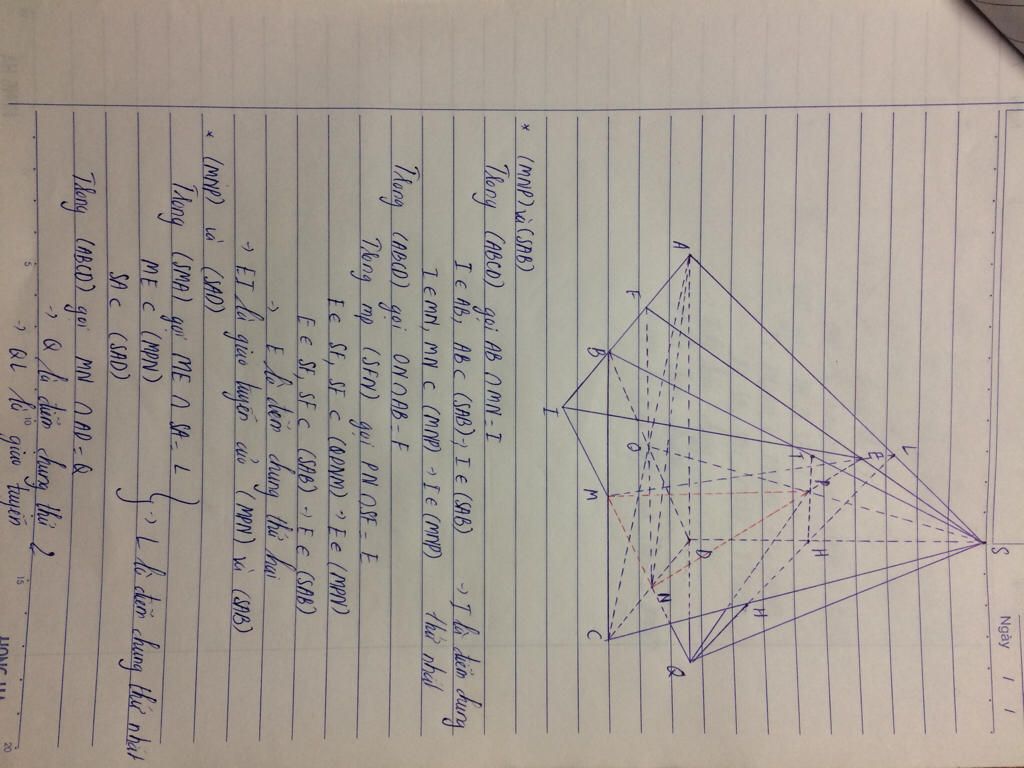 Ngày / /
S
L
E
T
P
H
H
A
F
B
I
O
D
M
N
C
Q
* (MNP) và (SAB)
Trong (ABCD) gọi AB ∩ MN = I
I ∈ AB, AB ⊂ (SAB) → I ∈ (SAB) → I là điểm chung
I ∈ MN, MN ⊂ (MNP) → I ∈ (MNP) thứ nhất
Trong (ABCD) gọi ON ∩ AB = F
Trong mp (SFN) gọi PN ∩ SF = E
E ∈ SF, SF ⊂ → E ∈ (MPN)
E ∈ SF, SF ⊂ (SAB) → E ∈ (SAB)
→ E là điểm chung thứ hai
→ EI là giao tuyến của (MPN) và (SAB)
* (MNP) và (SAD)
Trong (SMA) gọi ME ∩ SA = L
ME ⊂ (MPN) } → L là điểm chung thứ nhất
SA ⊂ (SAD)
Trong (ABCD) gọi MN ∩ AD = Q
→ Q là điểm chung thứ 2
→ QL là giao tuyến
5
10
15
20